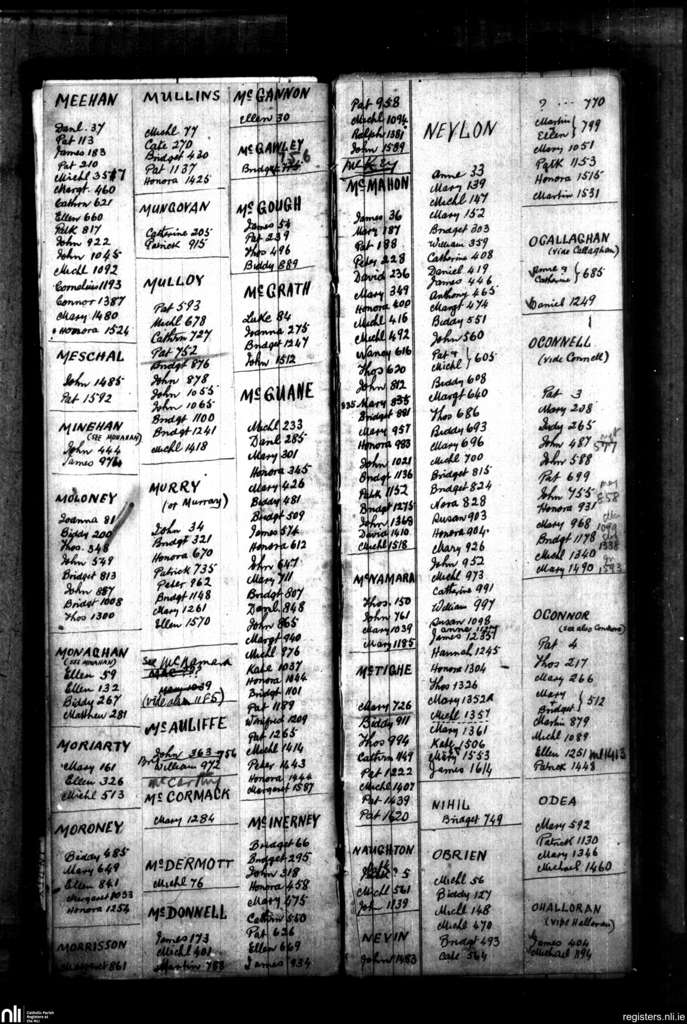 MEEHAN
Danl. 37
Pat 113
James 183
Pat 210
Michl
Margt. 460
Cathrn 621
Ellen 660
Patk 817
John 922
John 1045
Michl 1092
Cornelius 1193
Connor 1387
Mary 1480
Honora 1524
MESCHAL
John 1485
Pat 1592
MINEHAN
(SEE MONAHAN)
John 444
James
MOLONEY
Joanna 81
Biddy 200
Thos. 348
John 549
Bridget 813
John 887
Bridget 1008
Thos 1300
MONAGHAN
(SEE MINAHAN)
Ellen 59
Ellen 132
Biddy 267
Matthew 281
MORIARTY
Mary 161
Ellen 326
Michl 513
MORONEY
Biddy 485
Mary 649
Ellen 841
Margaret 1033
Honora 1254
MORRISSON
Margaret 861
MULLINS
Michl 77
Cate 270
Bridget 430
Pat 1137
Honora 1425
MUNGOVAN
Catherine 205
Patrick 915
MULLOY
Pat 593
Michl 678
Cathrn 727
Pat 752
Bridgt 876
John 878
John 1055
John 1065
Bridgt 1100
Bridgt 1241
Michl 1418
MURRY
(or Murray)
John 34
Bridgt 321
Honora 670
Patrick 735
Peter 962
Bridgt 1148
Mary 1261
Ellen 1570
See McNamara
(vide also 1185)
McAULIFFE
John 363 956
William 972
McCarthy
McCORMACK
Mary 1284
McDERMOTT
Michl 76
McDONNELL
James 173
Michl 401
Martin 788
McGANNON
Ellen 30
McGAWLEY
Bridget
McGOUGH
James 54
Pat 239
Thos 496
Biddy 889
McGRATH
Luke 84
Joanna 275
Bridget 1247
John 1512
McGUANE
Michl 233
Danl 285
Mary 301
Honora 345
Mary 426
Biddy 481
Bridgt 509
James 574
Honora 612
John 647
Mary 711
Bridgt 807
Danl 848
John 865
Margt 940
Michl 976
Kate 1037
Honora 1044
Bridgt 1101
Pat 1189
Winifred 1209
Pat 1265
Michl 1414
Peter 1443
Honora 1444
Margaret 1587
McINERNEY
Bridget 66
Bridget 295
John 318
Honora 458
Mary 475
Cathrn 550
Pat 626
Ellen 669
James 934
Pat 958
Michl 1094
Ralph 1381
John 1589
McMAHON
James 36
Mary 187
Pat 188
Peter 228
David 236
Mary 349
Honora 400
Michl 416
Michl 492
Nancy 616
Thos 620
John 812
835 Mary 835
Bridget 881
Mary 957
Honora 983
John 1021
Bridgt 1136
Patk 1152
Bridgt 1275
John 1368
David 1410
Michl 1518
McNAMARA
Thos. 150
John 761
Mary 1039
Mary 1185
McTIGHE
Mary 726
Biddy 911
Thos 994
Cathrn 1149
Pat 1222
Michl 1407
Pat 1439
Pat 1620
NAUGHTON
Michl 561
John 1139
NEVIN
John 1483
NEYLON
Anne 33
Mary 139
Michl 147
Mary 152
Bridget 303
William 359
Catherine 408
Daniel 419
James 446
Anthony 465
Margt 474
Biddy 551
John 560
Pat &
Michl } 605
Biddy 608
Margt 640
Thos 686
Biddy 693
Mary 696
Michl 700
Bridget 815
Bridget 824
Nora 828
Susan 903
Honora 904
Mary 926
John 952
Michl 973
Catherine 991
William 997
Susan 1098
James 1235
Hannah 1245
Honora 1304
Thos 1326
Mary 1352A
Michl 1357
Mary 1361
Kate 1506
Mary 1553
James 1614
NIHIL
Bridget 749
OBRIEN
Michl 56
Biddy 127
Michl 148
Michl 470
Bridgt 493
Cate 564
? ... 770
Martin
Ellen } 799
Mary 1051
Patk 1153
Honora 1515
Martin 1531
OGALLAGHAN
(vide Callaghan)
Anne &
Catherine } 685
Daniel 1249
OCONNELL
(vide Connell)
Pat 3
Mary 208
Judy 265
John 487
577
John 588
Pat 699
John 755
858
Honora 931
Mary 968
Bridgt 1178
1338
Michl 1340
Mary 1490 1593
OCONNOR
(see also Connors)
Pat 4
Thos 217
Mary 266
Mary
Bridget } 512
Martin 879
Michl 1089
Ellen 1251
Patrick 1448
ODEA
Mary 592
Patrick 1130
Mary 1346
Michael 1460
OHALLORAN
(Vide Halloran)
James 404
Michael 1194
nli
Catholic Parish
Registers at
the NLI
registers.nli.ie